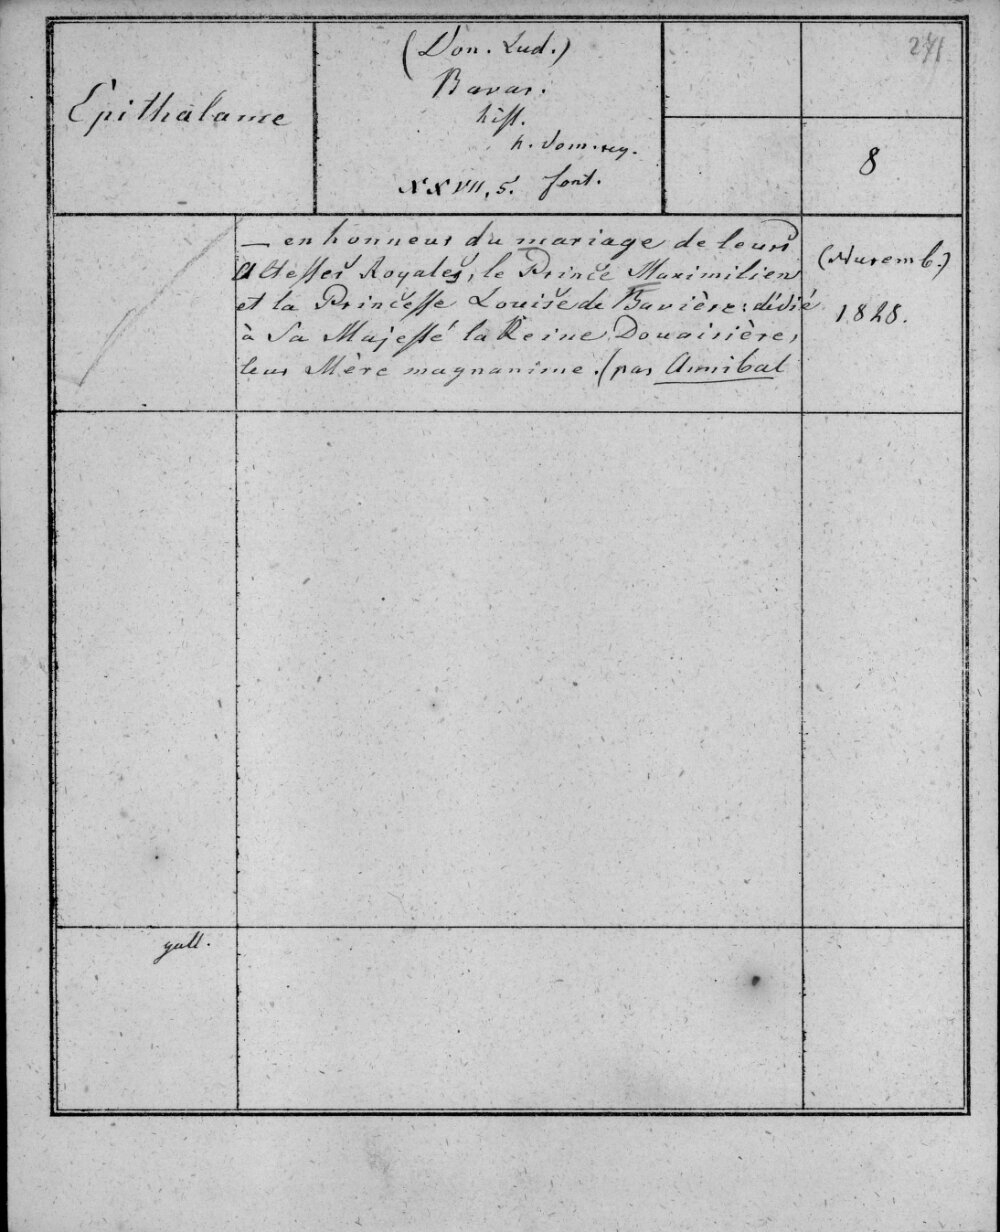 Épithalame
(Don. Lud.)
Bavar.
hist.
h. dom. reg.
XXVII, 5. font.
271
8
— en honneur du mariage de leurs
Altesses Royales, le Prince Maximilien
et la Princesse Louise de Bavière; dédié
à Sa Majesté la Reine Douairière,
leur Mère magnanime. (par Annibal
(Nuremb.)
1828.
gall.